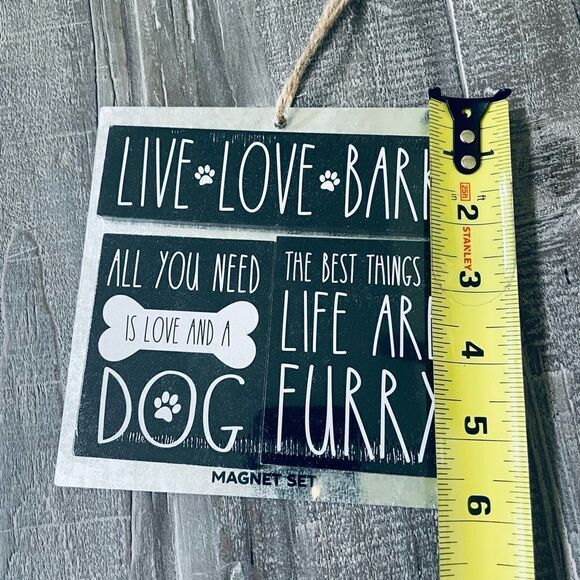 LIVE LOVE BARK
ALL YOU NEED
IS LOVE AND A
DOG
THE BEST THINGS
LIFE ARE
FURRY
MAGNET SET
25ft
ft
1
2
STANLEY
3
4
5
6